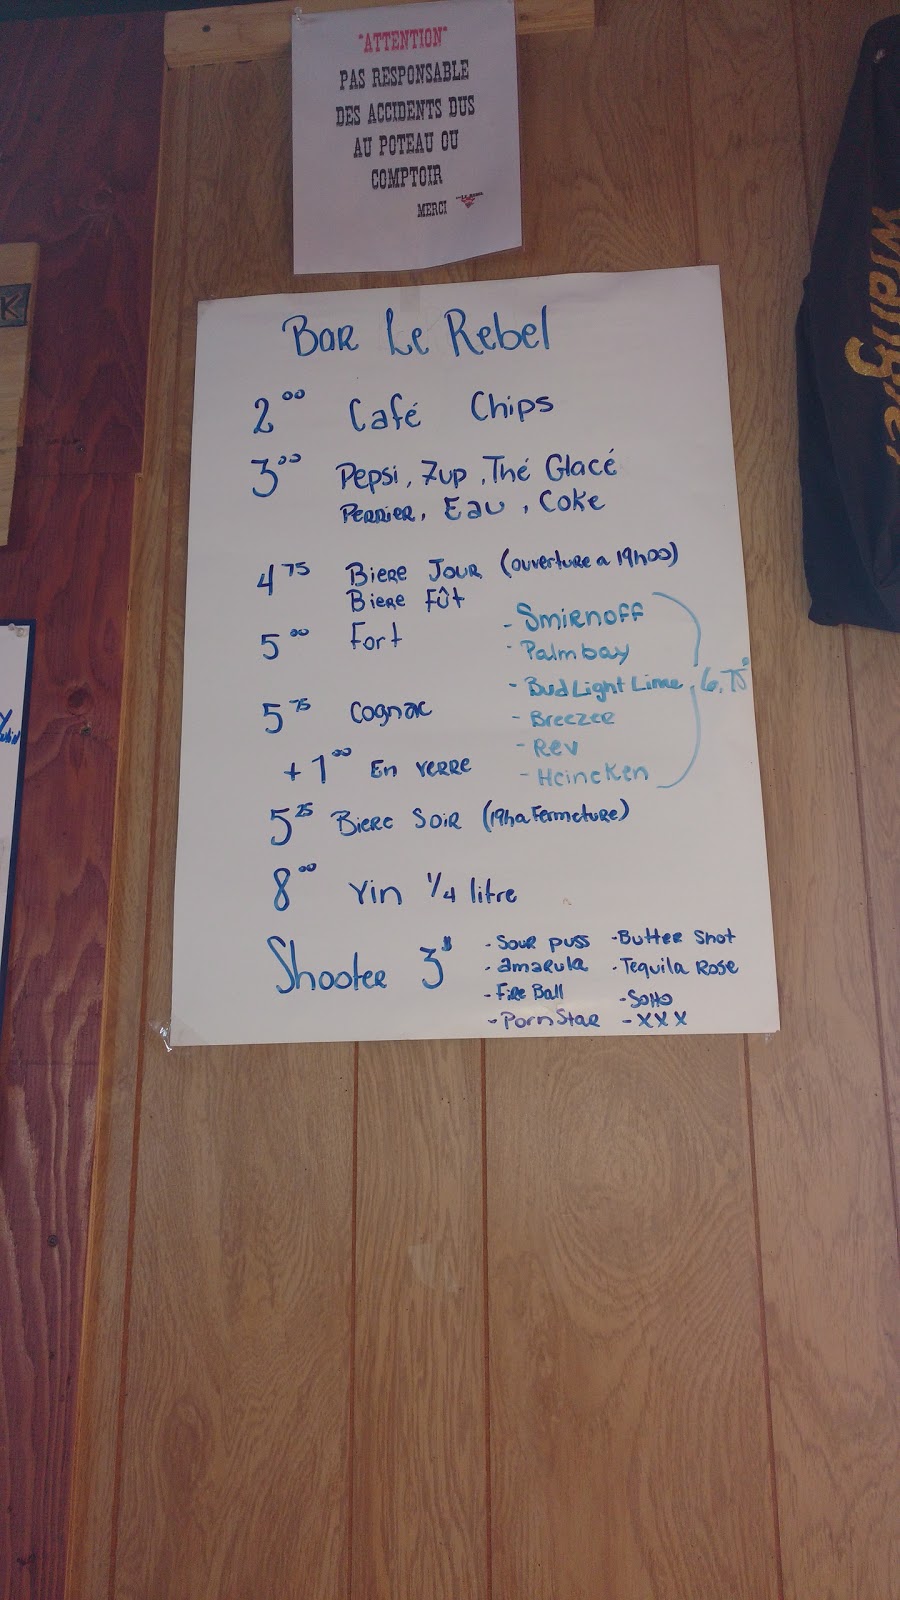 "ATTENTION"
PAS RESPONSABLE
DES ACCIDENTS DUS
AU POTEAU OU
COMPTOIR
MERCI
K
Wrangler
Bar Le Rebel
2.00 Café Chips
3.00 Pepsi, 7up, Thé Glacé
Perrier, Eau, Coke
4.75 Biere Jour (ouverture a 19h00)
Biere Fût
5.00 Fort
- Smirnoff
- Palmbay
- Bud Light Lime 6,75$
- Breezer
- Rev
- Heineken
5.75 Cognac
+ 1.00 En verre
5.25 Biere Soir (19h a Fermeture)
8.00 Vin 1/4 litre
Shooter 3$
- Sour puss - Butter Shot
- amarula - Tequila Rose
- Fire Ball - SoHo
- Porn Star - XXX